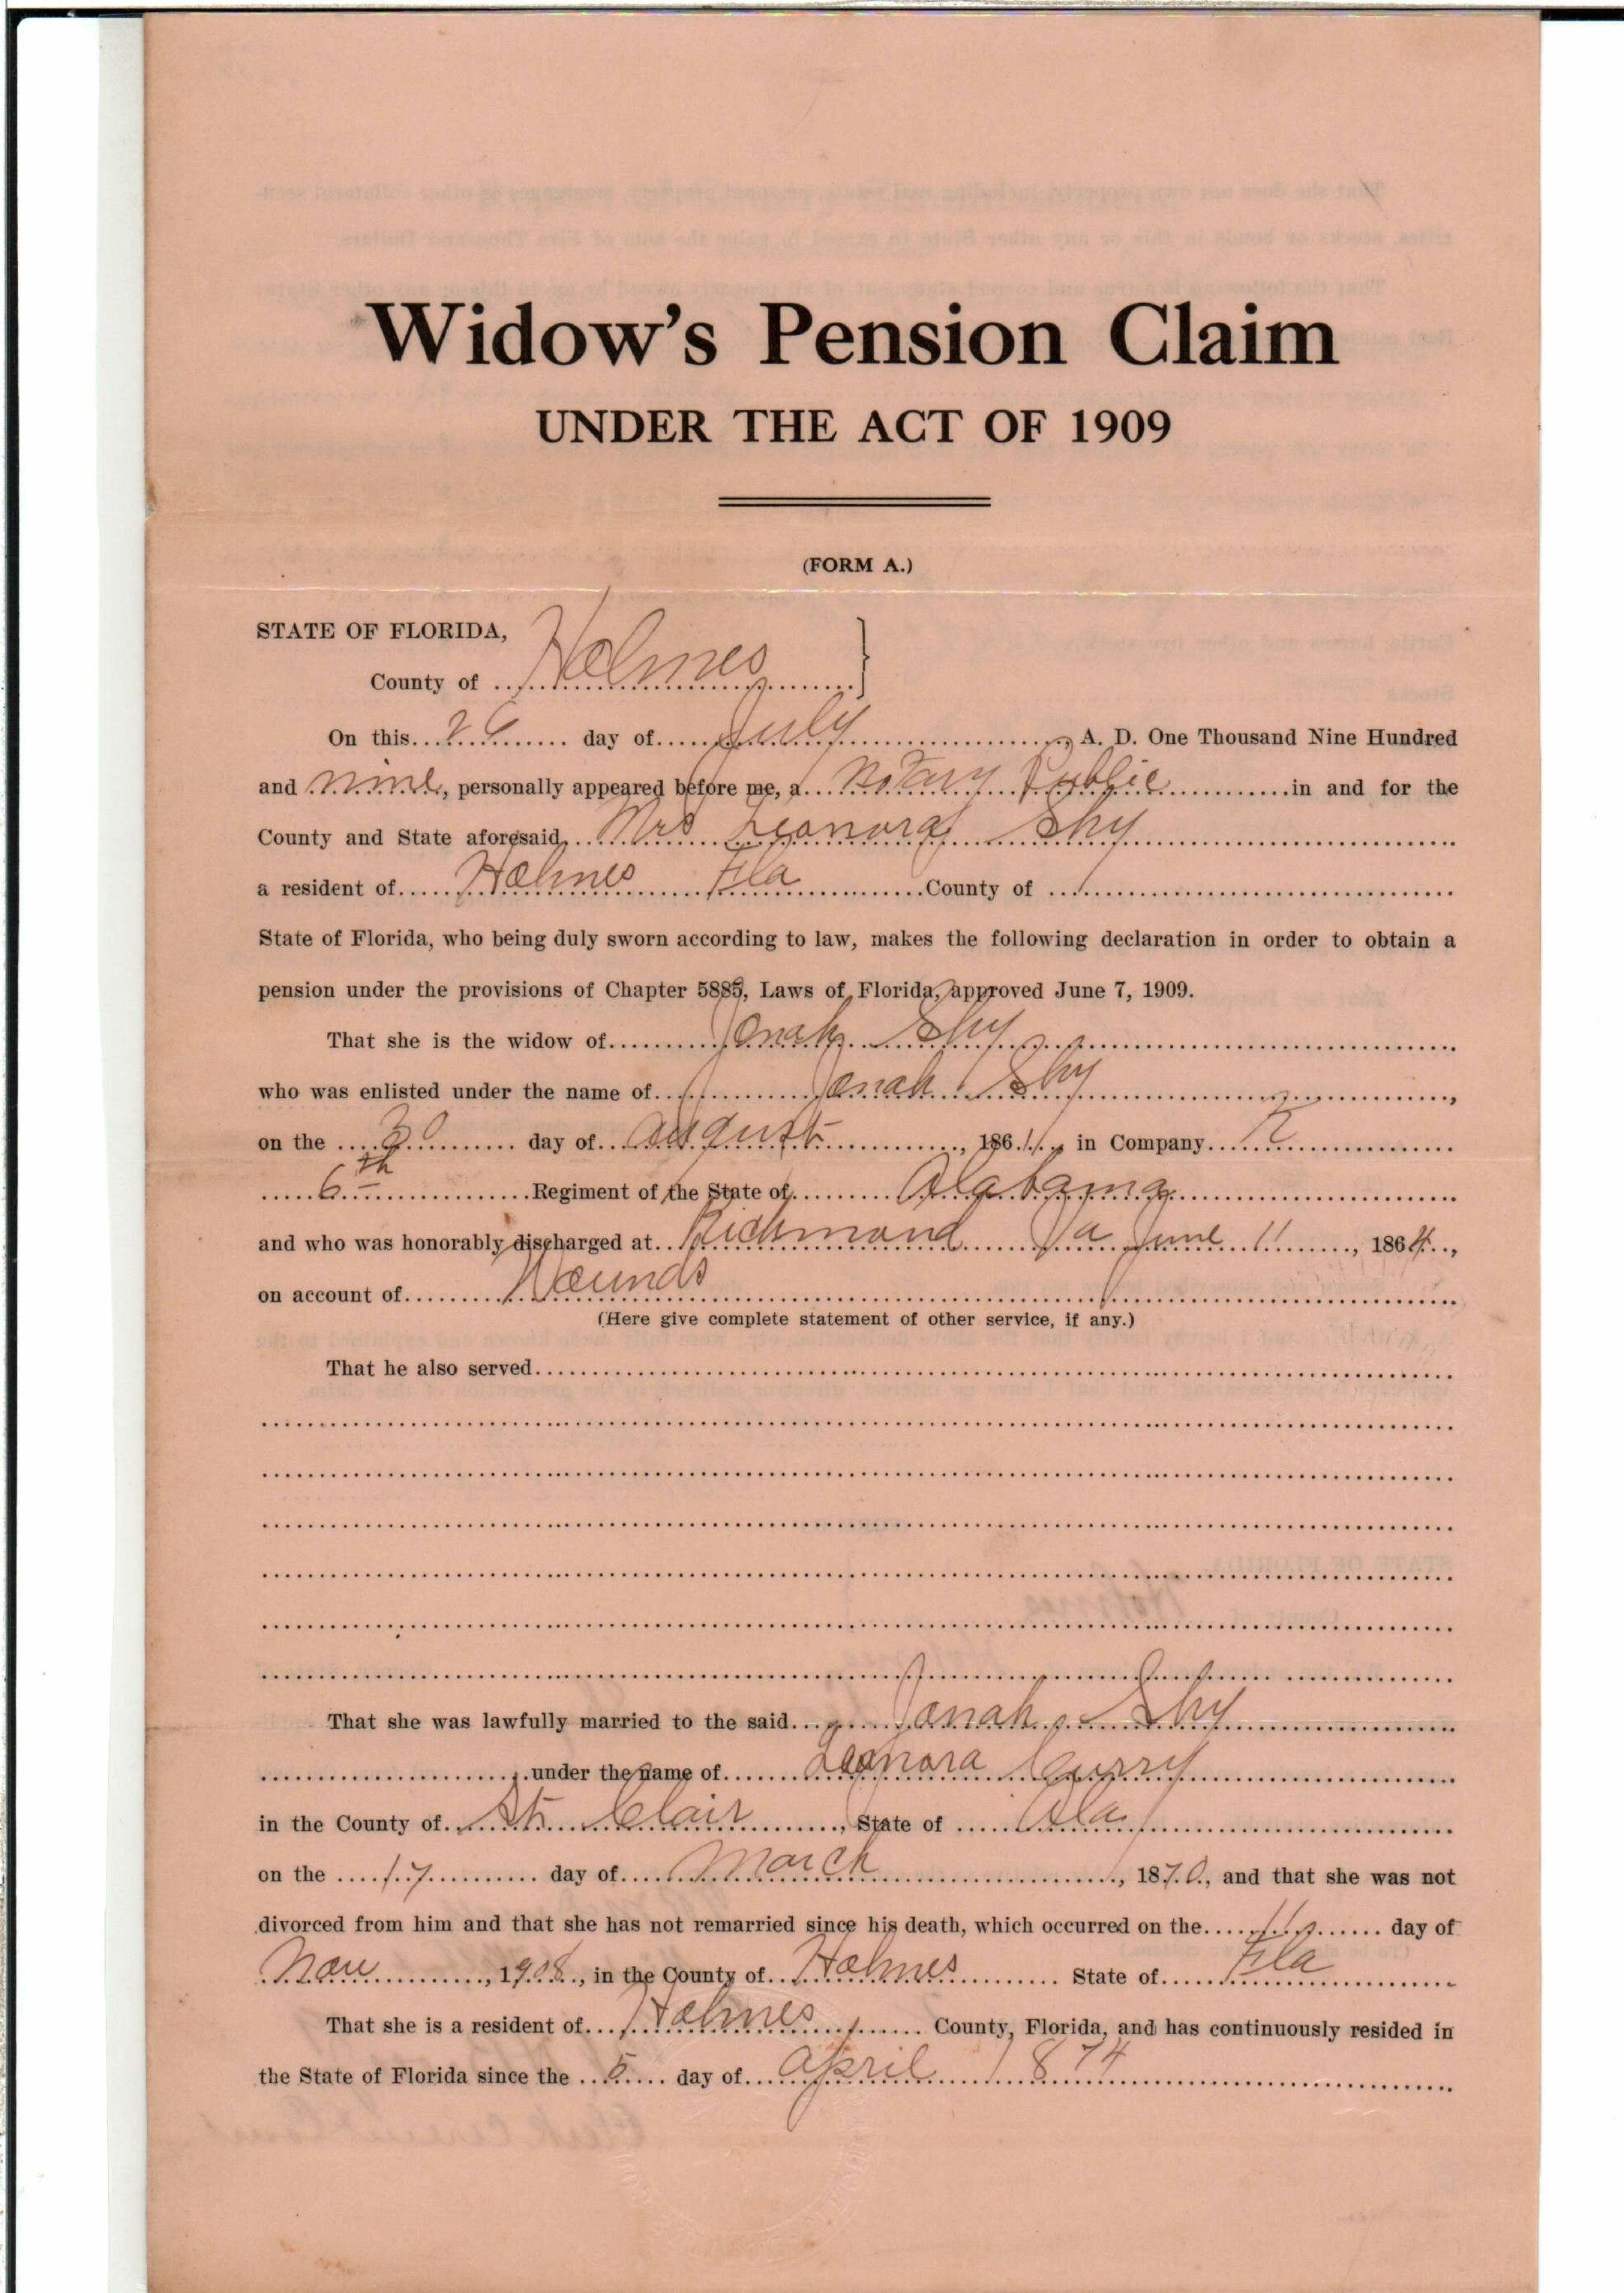 Widow's Pension Claim
UNDER THE ACT OF 1909
(FORM A.)
STATE OF FLORIDA,
County of Holmes
On this 26 day of July, A. D. One Thousand Nine Hundred
and nine, personally appeared before me, a Notary Public in and for the
County and State aforesaid, Mrs Leonora Shy
a resident of Holmes Fla County of
State of Florida, who being duly sworn according to law, makes the following declaration in order to obtain a
pension under the provisions of Chapter 5885, Laws of Florida, approved June 7, 1909.
That she is the widow of Jonah Shy
who was enlisted under the name of Jonah Shy,
on the day of August, 1861, in Company
6th Regiment of the State of Alabama
and who was honorably discharged at Richmond Va June 11, 1864,
on account of Wounds
(Here give complete statement of other service, if any.)
That he also served
That she was lawfully married to the said Jonah Shy
under the name of Leonora Curry
in the County of St Clair, State of Ala
on the 17 day of March, 1870, and that she was not
divorced from him and that she has not remarried since his death, which occurred on the 11 day of
Nov, 1908, in the County of Holmes State of Fla
That she is a resident of Holmes County, Florida, and has continuously resided in
the State of Florida since the 5 day of April 1874